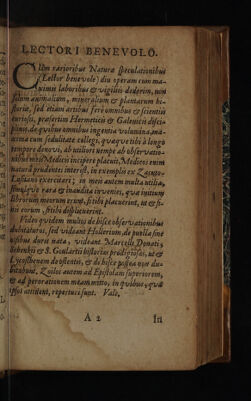 LECTORI BENEVOLO.
CUm rarioribus Naturæ speculationibus
(Lector benevole) diu operam cum ma-
ximis laboribus & vigiliis dederim, non
solum animalium, mineralium & plantarum hi-
storia, sed etiam artibus ferè omnibus & scientiis
curiosis, præsertim Hermeticis & Galenicis disci-
plinis, de quibus omnibus ingentia volumina, ma-
xima cum sedulitate collegi, quæque tibi à longo
tempore donovi, ab utiliori nempe ab observatio-
nibus meis Medicis incipere placuit, Medicos enim
naturâ prudentes interest, in exemplis ex Zacuto-
Lusitano exercitari; in meis autem multa utilia,
simulque rara & inaudita invenies, quæ initium
librorum meorum erunt, si tibi placuerint, ut & fi-
nis eorum, si tibi displicuerint.
Video quidem multos de hisce observationibus
dubitaturos, sed videant Hollerium de
visibus dura nata, videant Marcelli Donati,
& S. Goulartii historias prodigiosas, ut &
Lycosthenem de ostentis, & de hisce postea non du-
bitabunt, Zoilos autem ad Epistolam superiorem,
& ad perorationem meam mitto, in quibus, quæ
ipsos attinent, reposita sunt. Vale,
A 2 In